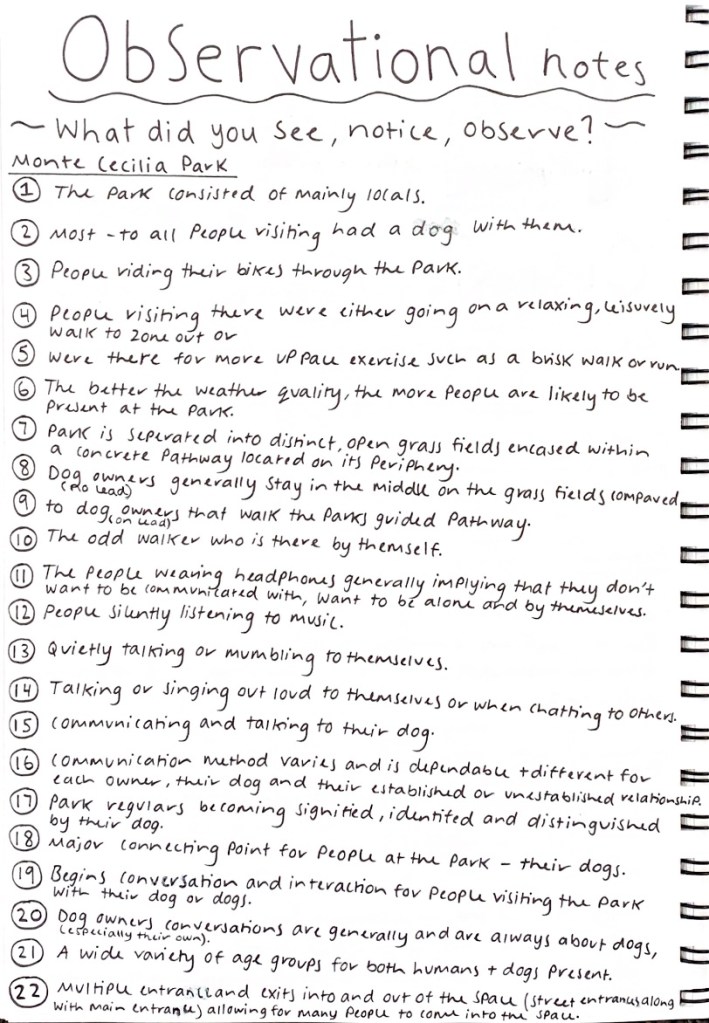 Observational notes
~ What did you see, notice, observe? ~
Monte Cecilia Park
① The park consisted of mainly locals.
② Most - to all people visiting had a dog with them.
③ People riding their bikes through the park.
④ People visiting there were either going on a relaxing, leisurely
walk to zone out or
⑤ were there for more up pace exercise such as a brisk walk or run.
⑥ The better the weather quality, the more people are likely to be
present at the park.
⑦ Park is seperated into distinct, open grass fields encased within
a concrete pathway located on its periphery.
⑧ Dog owners generally stay in the middle on the grass fields compared
(no lead)
⑨ to dog owners that walk the parks guided pathway.
(on lead)
⑩ The odd walker who is there by themself.
⑪ The people wearing headphones generally implying that they don't
want to be communicated with, want to be alone and by themeselves.
⑫ People silently listening to music.
⑬ Quietly talking or mumbling to themselves.
⑭ Talking or singing out loud to themselves or when chatting to others.
⑮ Communicating and talking to their dog.
⑯ Communication method varies and is dependable + different for
each owner, their dog and their established or unestablished relationship.
⑰ Park regulars becoming signified, identified and distinguished
by their dog.
⑱ Major connecting point for people at the park - their dogs.
⑲ Begins conversation and interaction for people visiting the park
with their dog or dogs.
⑳ Dog owners conversations are generally and are always about dogs,
(especially their own).
㉑ A wide variety of age groups for both humans + dogs present.
㉒ Multiple entrance and exits into and out of the space (street entrances along
with main entrance) allowing for many people to come into the space.